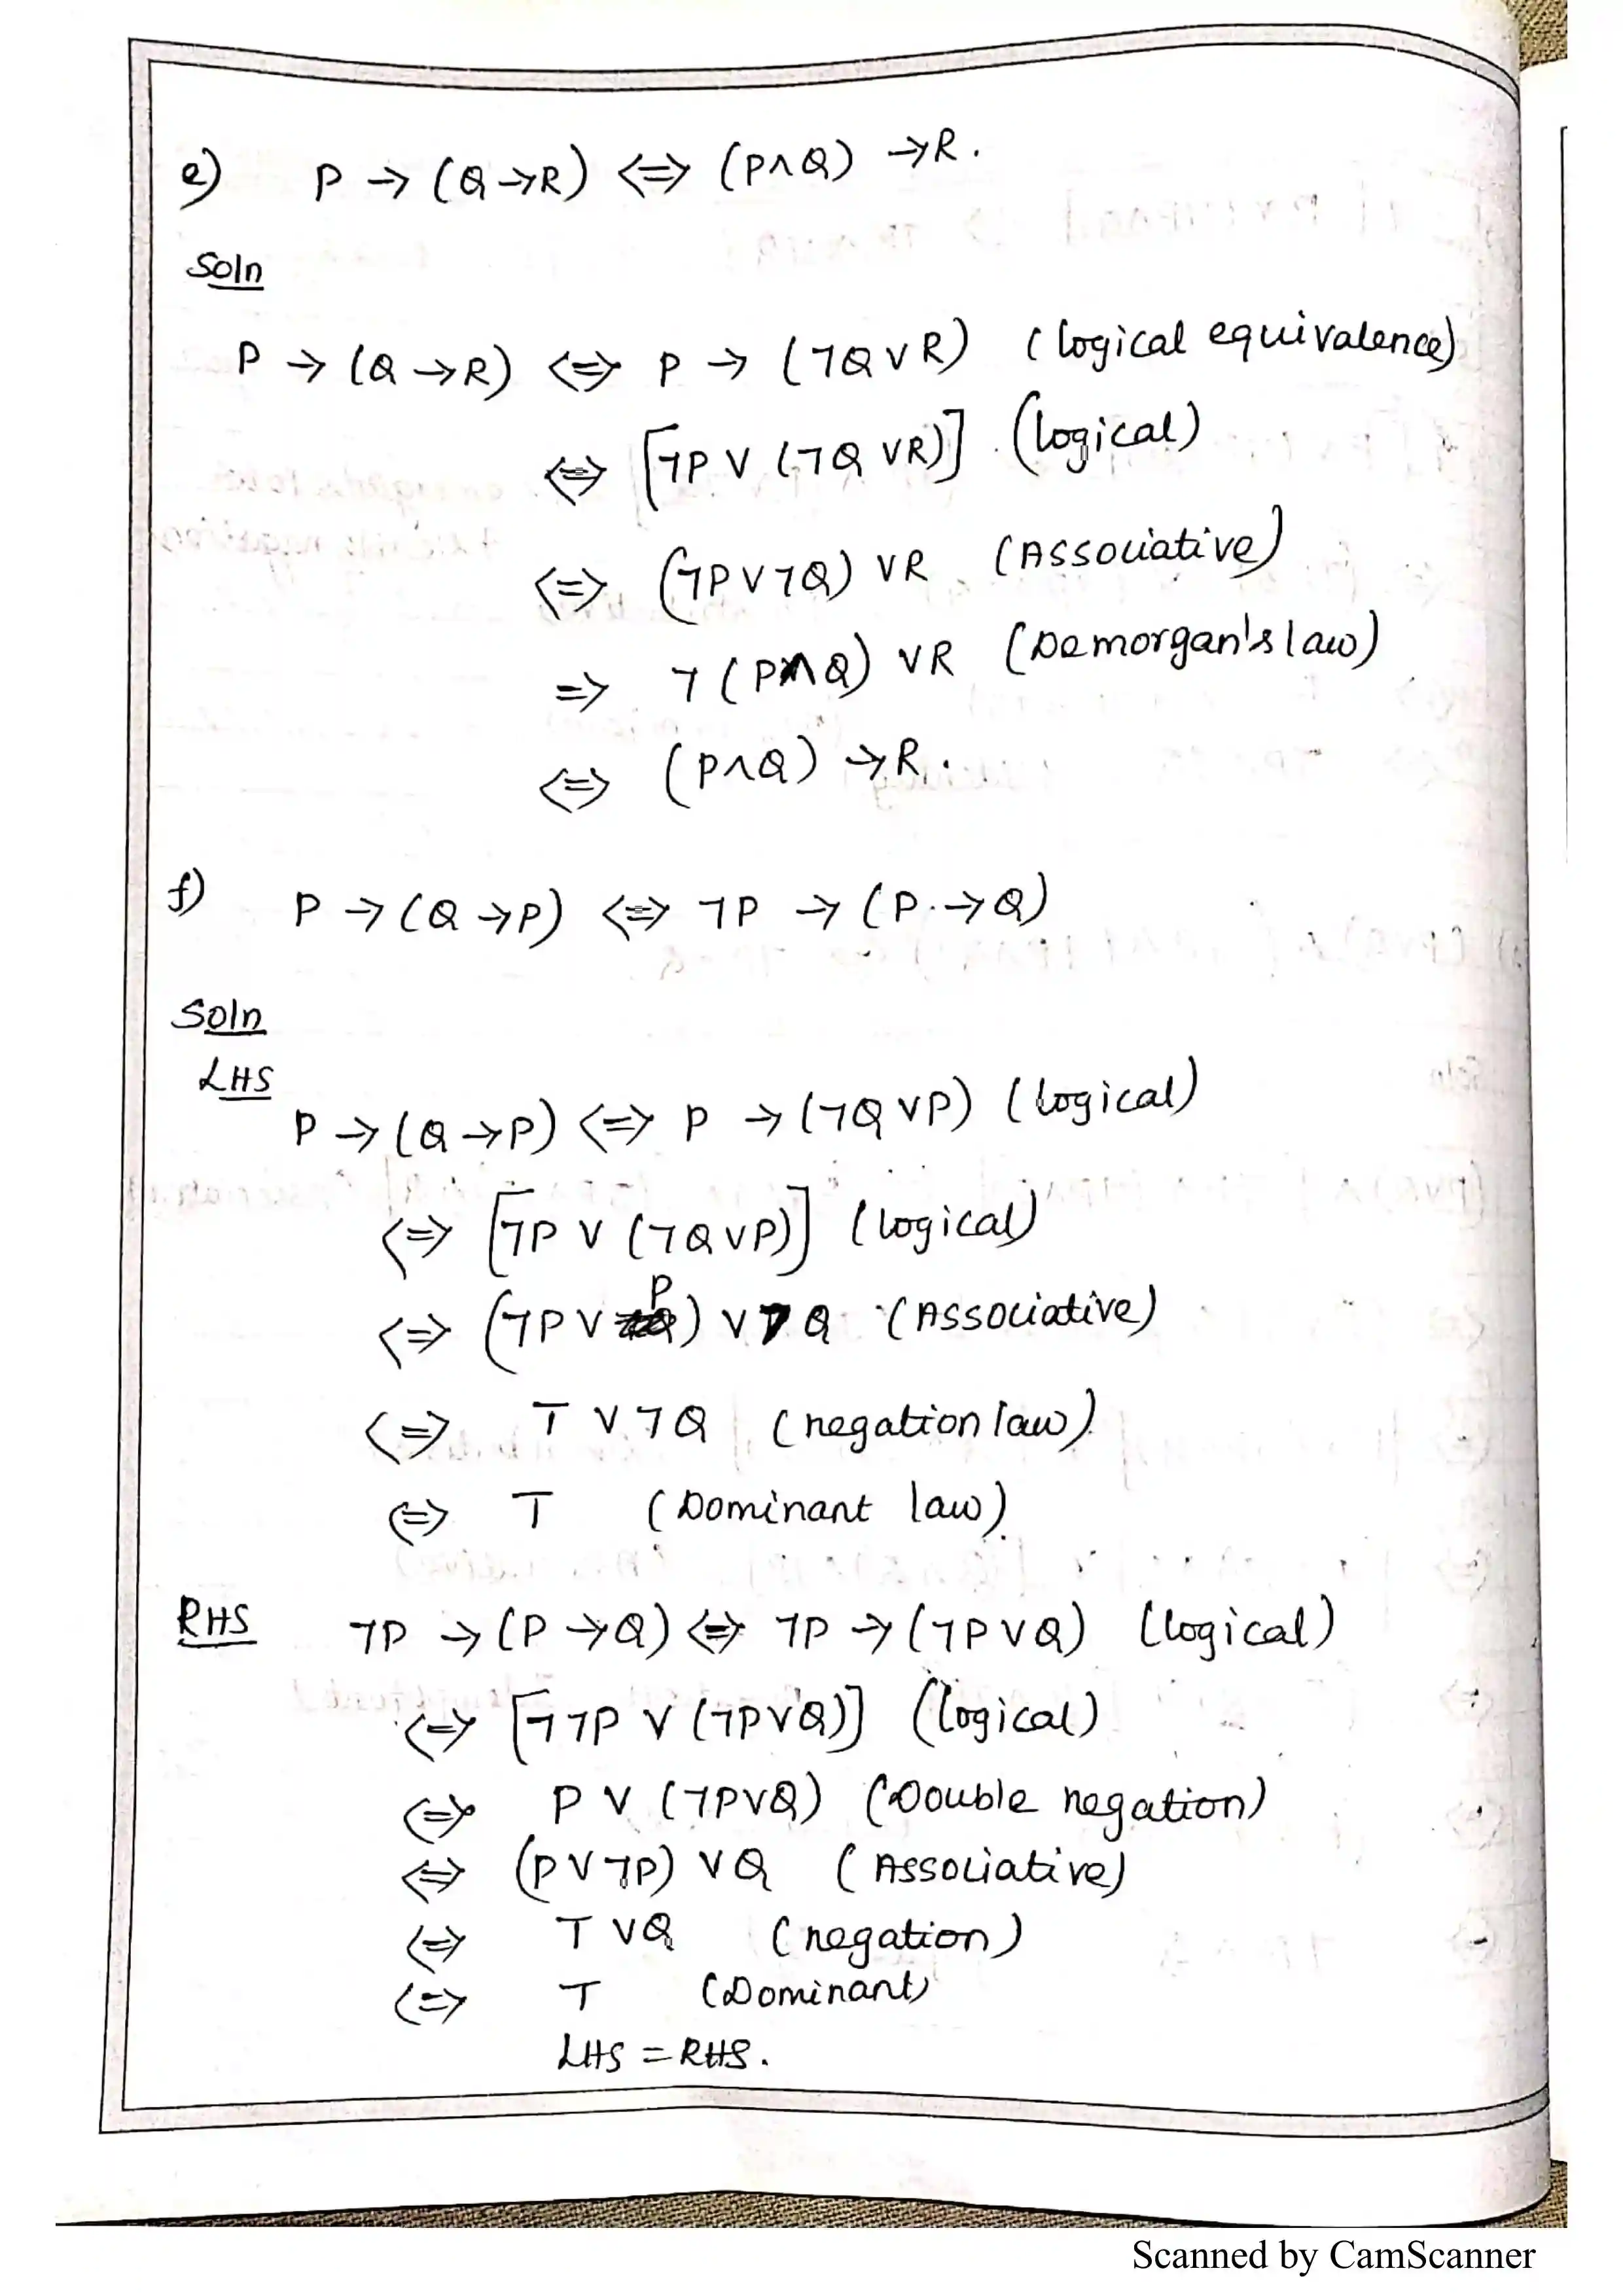 e) P → (Q → R) ⇔ (P ∧ Q) → R.
Soln
P → (Q → R) ⇔ P → (¬Q ∨ R) (logical equivalence)
⇔ [¬P ∨ (¬Q ∨ R)] (logical)
⇔ (¬P ∨ ¬Q) ∨ R (Associative)
⇒ ¬(P ∧ Q) ∨ R (Demorgan's law)
⇔ (P ∧ Q) → R.
f) P → (Q → P) ⇔ ¬P → (P → Q)
Soln
LHS
P → (Q → P) ⇔ P → (¬Q ∨ P) (logical)
⇔ [¬P ∨ (¬Q ∨ P)] (logical)
⇔ (¬P ∨ P) ∨ ¬Q (Associative)
⇔ T ∨ ¬Q (negation law)
⇔ T (Dominant law)
RHS ¬P → (P → Q) ⇔ ¬P → (¬P ∨ Q) (logical)
⇔ [¬¬P ∨ (¬P ∨ Q)] (logical)
⇔ P ∨ (¬P ∨ Q) (Double negation)
⇔ (P ∨ ¬P) ∨ Q (Associative)
⇔ T ∨ Q (negation)
⇔ T (Dominant)
LHS = RHS.
Scanned by CamScanner